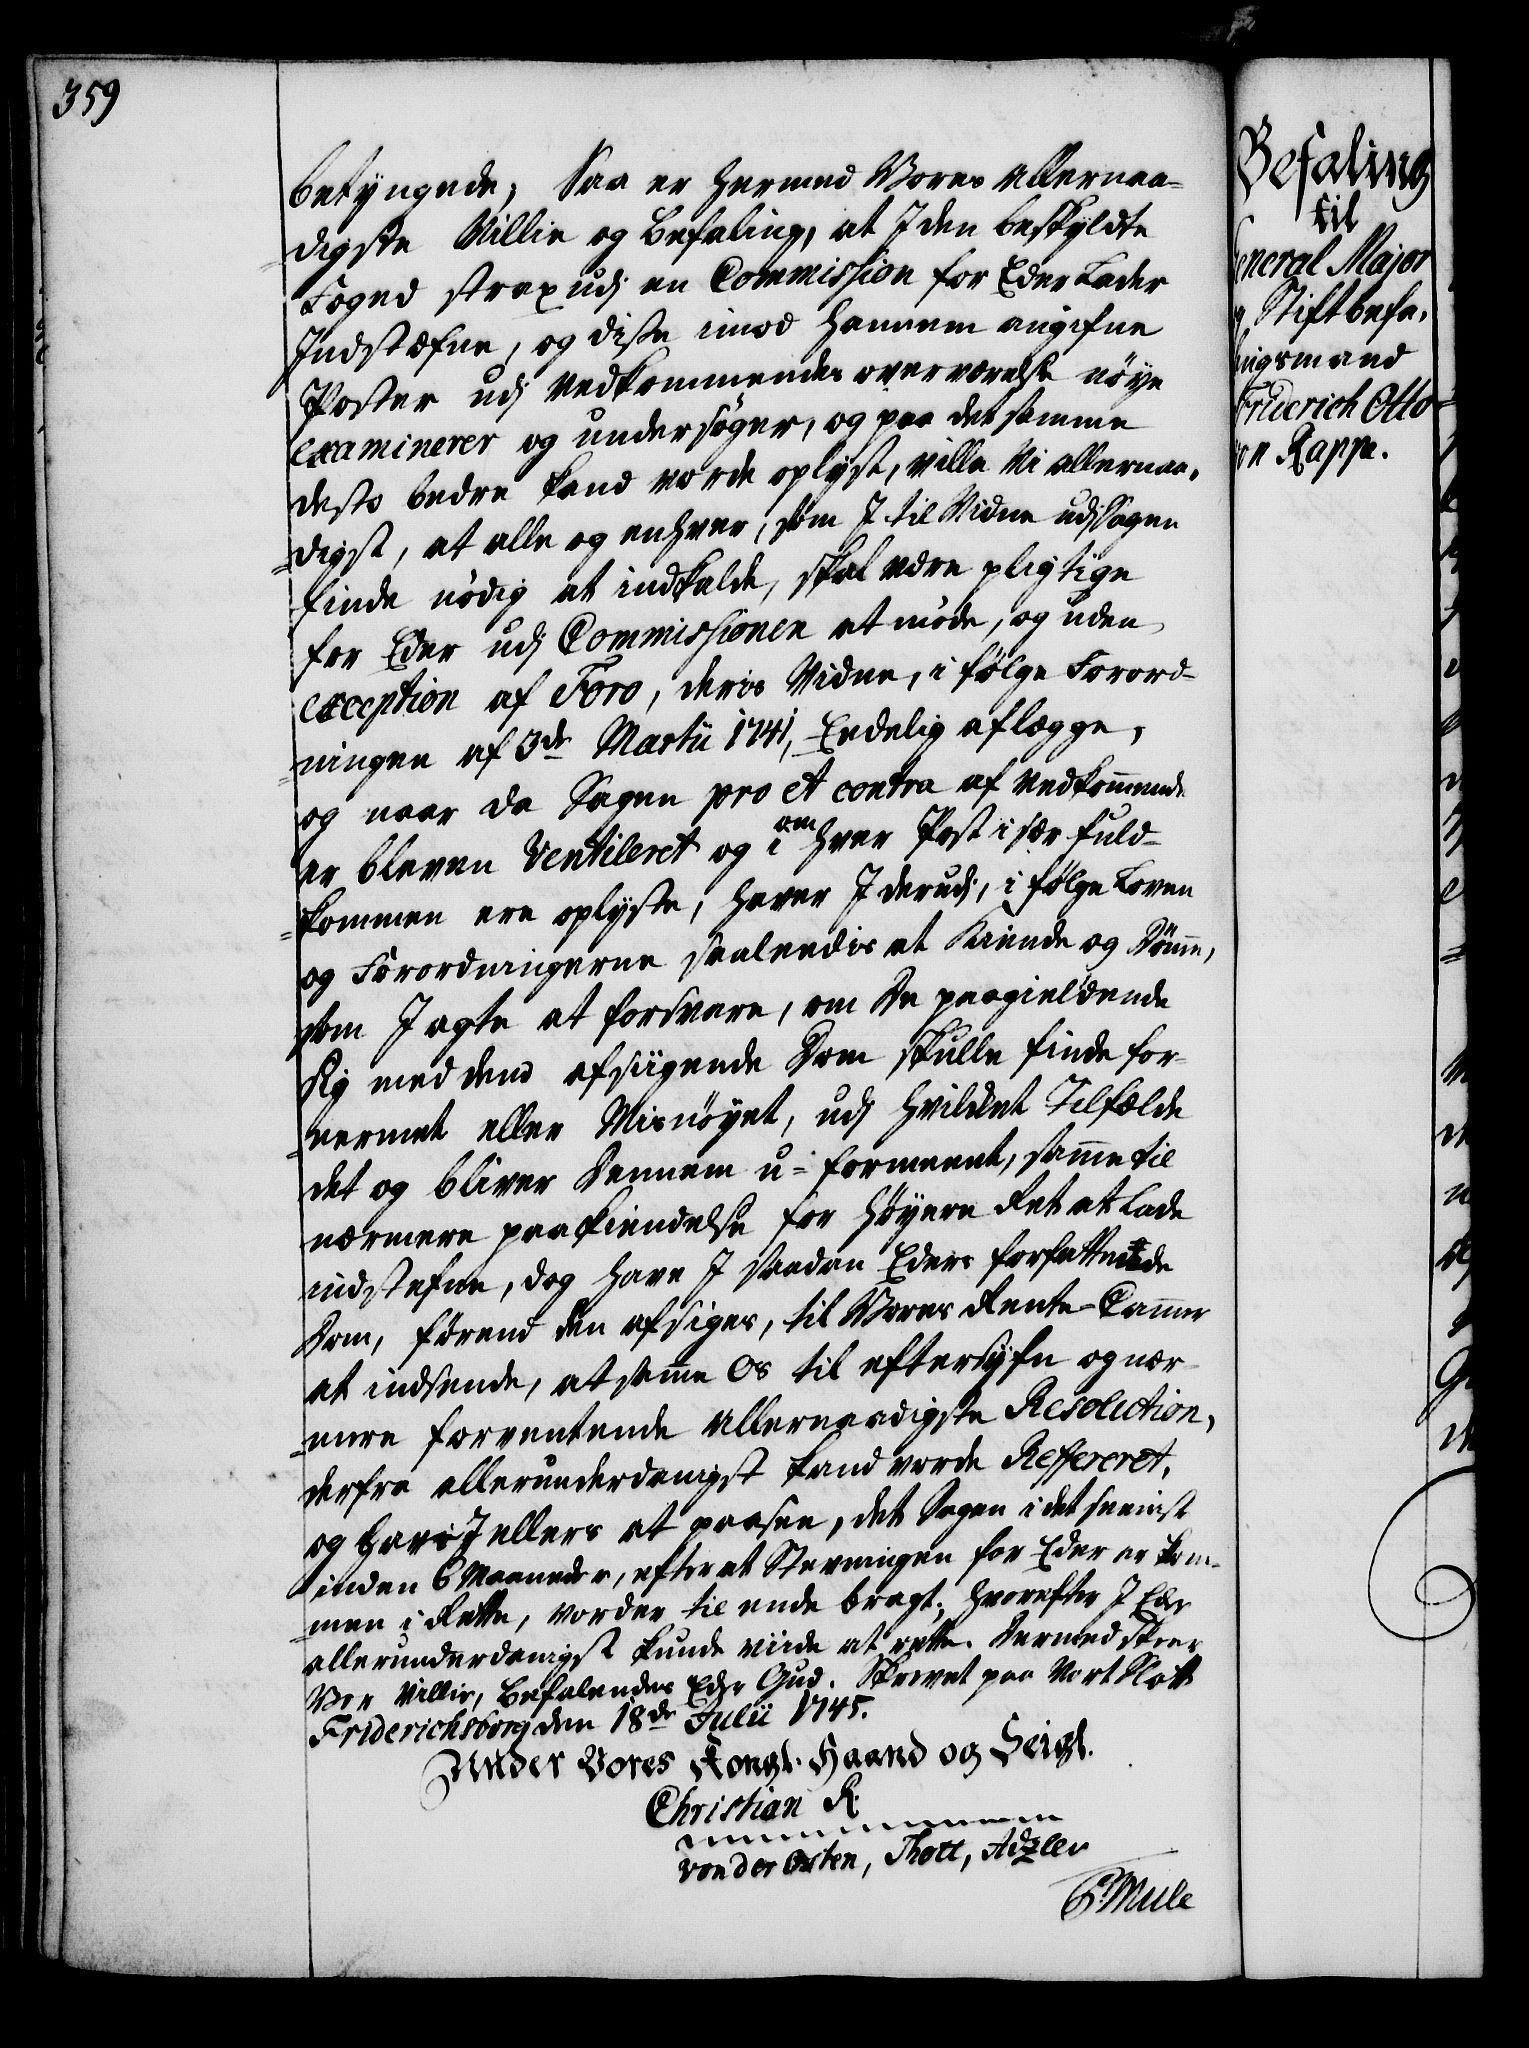 359
betyngede; Saa er hermed Vores Allernaa-
digste Villie og Befaling, at I den beskyldte
Foged strax udj en Commission for Eder Lader
Indstæfne, og disse imod hannem angifne
Poster udj Vedkommendes overværelse nöye
examinerer og undersöger, og paa det samme
desto bedre kand vorde oplyst, ville Vi allernaa-
digst, at alle og enhver, som I til Vidne udj Sagen
finde nödig at indkalde, skal være pligtige
for Eder udj Commissionen at möde, og uden
exception af Foro, deris Vidne, i fölge Forord-
ningen af 3de Martii 1741, Endelig aflægge,
og naar da Sagen pro et contra af Vedkommende
er bleven Ventileret og i om hver Post i sær fuld-
kommen ere oplyste, haver I derudj, i fölge Loven
og Forordningerne saaledis at Kiende og Dömme,
som I agte at forsvare, om De paagieldende
sig med dend afsiigende Dom skulle finde for-
nermet eller Misnöyet, udj hvilket Tilfælde
det og bliver Dennem u-formeent, samme til
nærmere paakiendelse for Höyere Ret at Lade
indstefne, dog have I saadan Eders forfattende
Dom, förend den afsiges, til Vores Rente-Cammer
at indsende, at samme Os til eftersyfn og nær-
mere forventende Allernaadigste Resolution,
derfra allerunderdanigst kand vorde Reffereret,
og have I ellers at paasee, det Sagen i det seeniste
inden 6 Maaneder, efter at Stevningen for Eder er kom-
men i Rette, vorder til ende bragt; hvorefter I Eder
allerunderdanigst kunde viide at rette. Dermed skeer
Vor Villie, Befalendes Eder Gud. Skrevet paa Vort Slott
Friderichsborg den 18de Julii 1745.
Under Vores Kongl. Haand og Seigl.
Christian R.
von der Osten, Thott, Adzler
P. Mule
Befaling
til
General Major
Stiftbefa-
lingsmand
Friderich Otto
von Rappe.